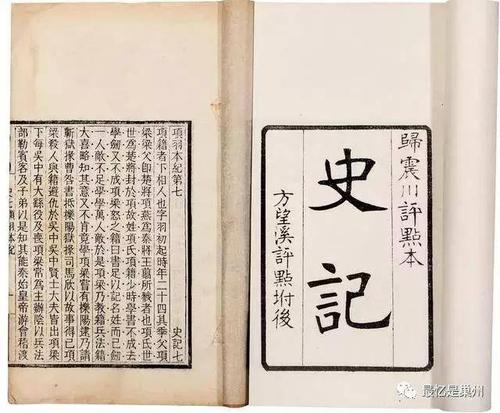 歸震川評點本
史記
方望溪評點坿後
項羽本紀第七 史記七
項籍者下相人也字羽初起時年二十四其季父項
梁梁父卽楚將項燕爲秦將王翦所戮者也項氏世
世爲楚將封於項故姓項氏項籍少時學書不成去
學劒又不成項梁怒之籍曰書足以記名姓而已劒
一人敵不足學學萬人敵於是項梁乃教籍兵法籍
大喜略知其意又不肯竟學項梁嘗有櫟陽逮乃請
蘄獄掾曹咎書抵櫟陽獄掾司馬欣以故事得已項
梁殺人與籍避仇於吳中吳中賢士大夫皆出項梁
下每吳中有大繇役及喪項梁常爲主辦陰以兵法
部勒賓客及子弟以是知其能秦始皇帝游會稽渡
最忆是巢州